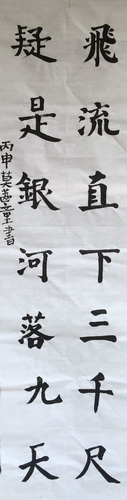 飛流直下三千尺
疑是銀河落九天
丙申莫善童書